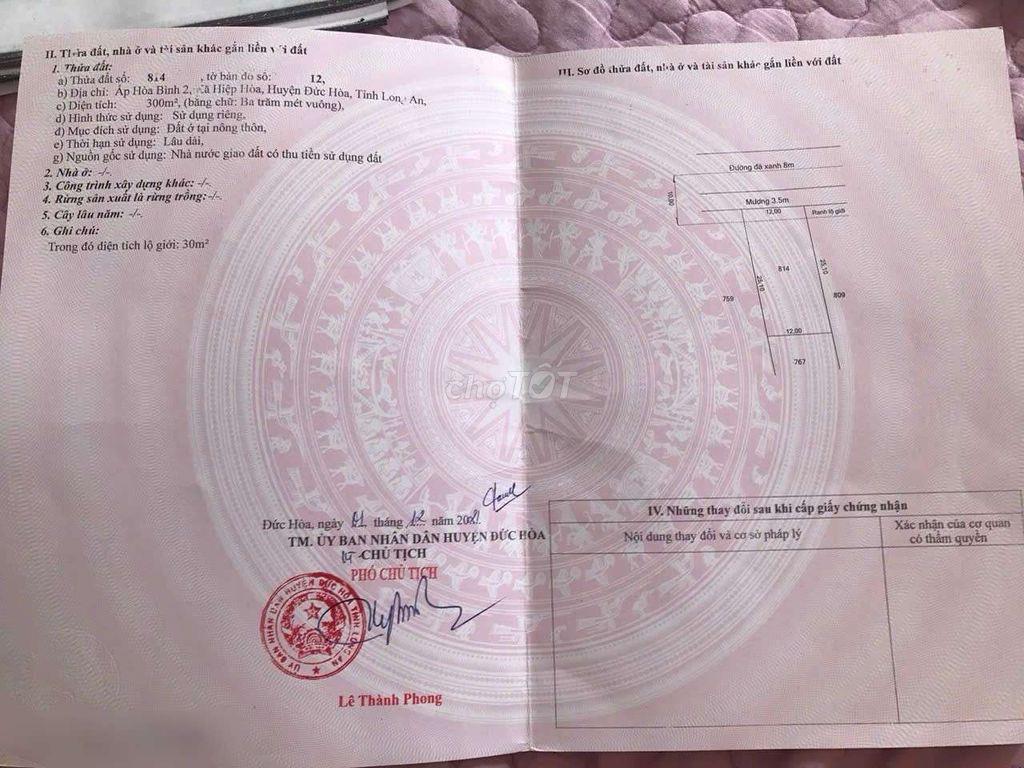 II. Thửa đất, nhà ở và tài sản khác gắn liền với đất
1. Thửa đất:
a) Thửa đất số: 814 , tờ bản đồ số: 12,
b) Địa chỉ: Ấp Hòa Bình 2, xã Hiệp Hòa, Huyện Đức Hòa, Tỉnh Long An,
c) Diện tích: 300m², (bằng chữ: Ba trăm mét vuông),
d) Hình thức sử dụng: Sử dụng riêng,
đ) Mục đích sử dụng: Đất ở tại nông thôn,
e) Thời hạn sử dụng: Lâu dài,
g) Nguồn gốc sử dụng: Nhà nước giao đất có thu tiền sử dụng đất
2. Nhà ở: -/-.
3. Công trình xây dựng khác: -/-.
4. Rừng sản xuất là rừng trồng: -/-.
5. Cây lâu năm: -/-.
6. Ghi chú:
Trong đó diện tích lộ giới: 30m²
Đức Hòa, ngày 01 tháng 12 năm 2021
TM. ỦY BAN NHÂN DÂN HUYỆN ĐỨC HÒA
KT CHỦ TỊCH
PHÓ CHỦ TỊCH
ỦY BAN NHÂN DÂN HUYỆN ĐỨC HÒA TỈNH LONG AN
Lê Thành Phong
III. Sơ đồ thửa đất, nhà ở và tài sản khác gắn liền với đất
Đường đá xanh 8m
10,00
Mương 3.5m
12,00
Ranh lộ giới
25,10
814
25,10
759
809
12,00
767
chợTỐT
IV. Những thay đổi sau khi cấp giấy chứng nhận
Nội dung thay đổi và cơ sở pháp lý
Xác nhận của cơ quan
có thẩm quyền